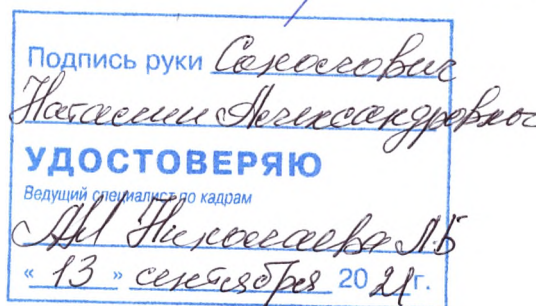 Подпись руки
Наталии Александровны
УДОСТОВЕРЯЮ
Ведущий специалист по кадрам
Николаева Л.Б
« 13 » сентября 20 21 г.